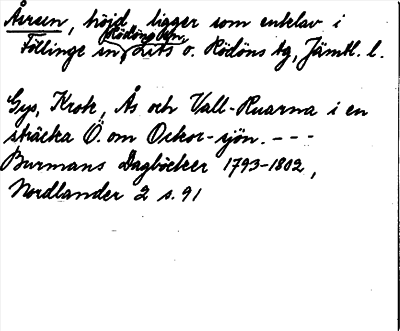 Åruen, höjd, ligger som enklav i
Rödöns sn,
Föllinge sn, Lits o. Rödöns tg, Jämtl. l.
Gys, Krok, Ås och Vall-Ruarna i en
sträcka Ö. om Ockor-sjön. - - -
Burmans Dagböcker 1793-1802,
Nordlander 2 s. 91